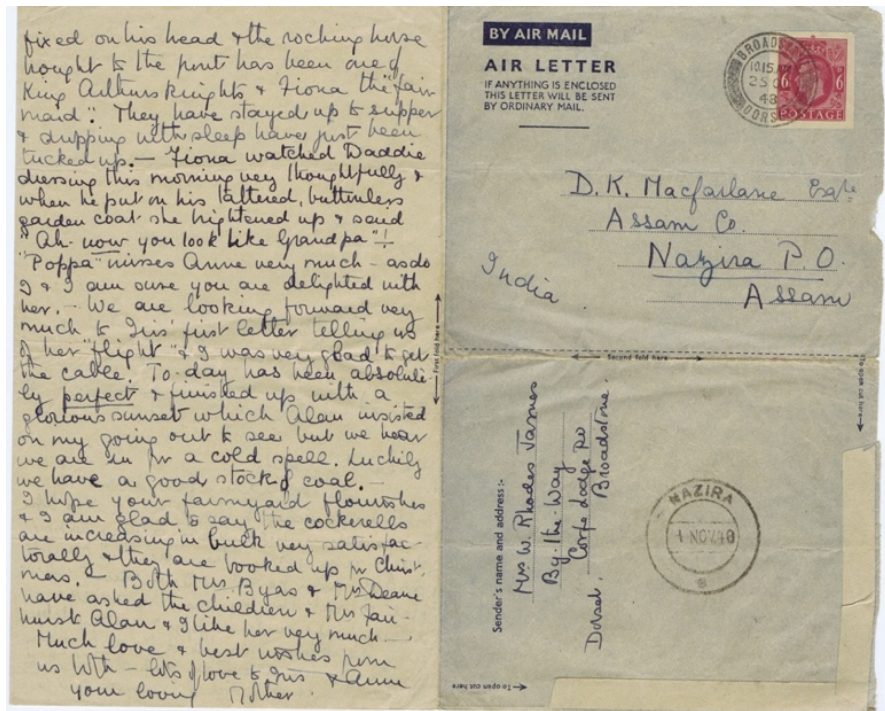 fixed on his head & the rocking horse
bought to the port has been one of
King Arthurs Knights & Fiona the "fair
maid". They have stayed up to supper
& dropping with sleep have just been
tucked up. — Fiona watched Daddie
dressing this morning very thoughtfully &
when he put on his tattered, buttonless
garden coat she brightened up & said
"Ah now you look like Grandpa"!
"Poppa" misses Anne very much — as do
I & I am sure you are delighted with
her. — We are looking forward very
much to Iris' first letter telling us
of her "flight" & I was very glad to get
the cable. To-day has been absolute-
ly perfect & finished up with a
glorious sunset which Alan insisted
on my going out to see but we hear
we are in for a cold spell. Luckily
we have a good stock of coal. —
I hope your farmyard flourishes
& I am glad to say the cockerells
are increasing in bulk very satisfac-
torally & they are booked up for Christ-
mas. — Both Mrs Byas & Mrs Deane
have asked the children & Mrs Fair-
hurst Alan & I like her very much —
Much love & best wishes from
us both — lots of love to Iris & Anne
your loving Mother.
BY AIR MAIL
AIR LETTER
IF ANYTHING IS ENCLOSED
THIS LETTER WILL BE SENT
BY ORDINARY MAIL.
10.15 AM
48
DORSET
6 6
POSTAGE
D. K. Macfarlane Esq.
Assam Co.
Nazira P.O.
Assam
India
First fold here
Second fold here
To open cut here
Sender's name and address :-
Mrs W. Rhodes James
By-the-Way
Corfe Lodge Rd
Broadstone.
Dorset.
NAZIRA
1 NOV 48
To open cut here